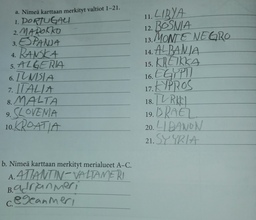 a. Nimeä karttaan merkityt valtiot 1–21.
1. PORTUGALI
2. MAROKKO
3. ESPANJA
4. RANSKA
5. ALGERIA
6. TUNISIA
7. ITALIA
8. MALTA
9. SLOVENIA
10. KROATIA
11. LIBYA
12. BOSNIA
13. MONTE NEGRO
14. ALBANIA
15. KREIKKA
16. EGYPTI
17. KYPROS
18. TURKKI
19. ISRAEL
20. LIBANON
21. SYYRIA
b. Nimeä karttaan merkityt merialueet A–C.
A. ATLANTIN-VALTAMERI
B. adrianmeri
C. egeanmeri